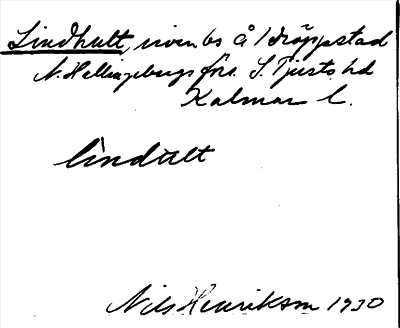 Lindhult, even bs å 1 Dröppstad
N. Hellingebergs förs. S. Tjusts hd
Kalmar l.
lìndult
Nils Henrikson 1930